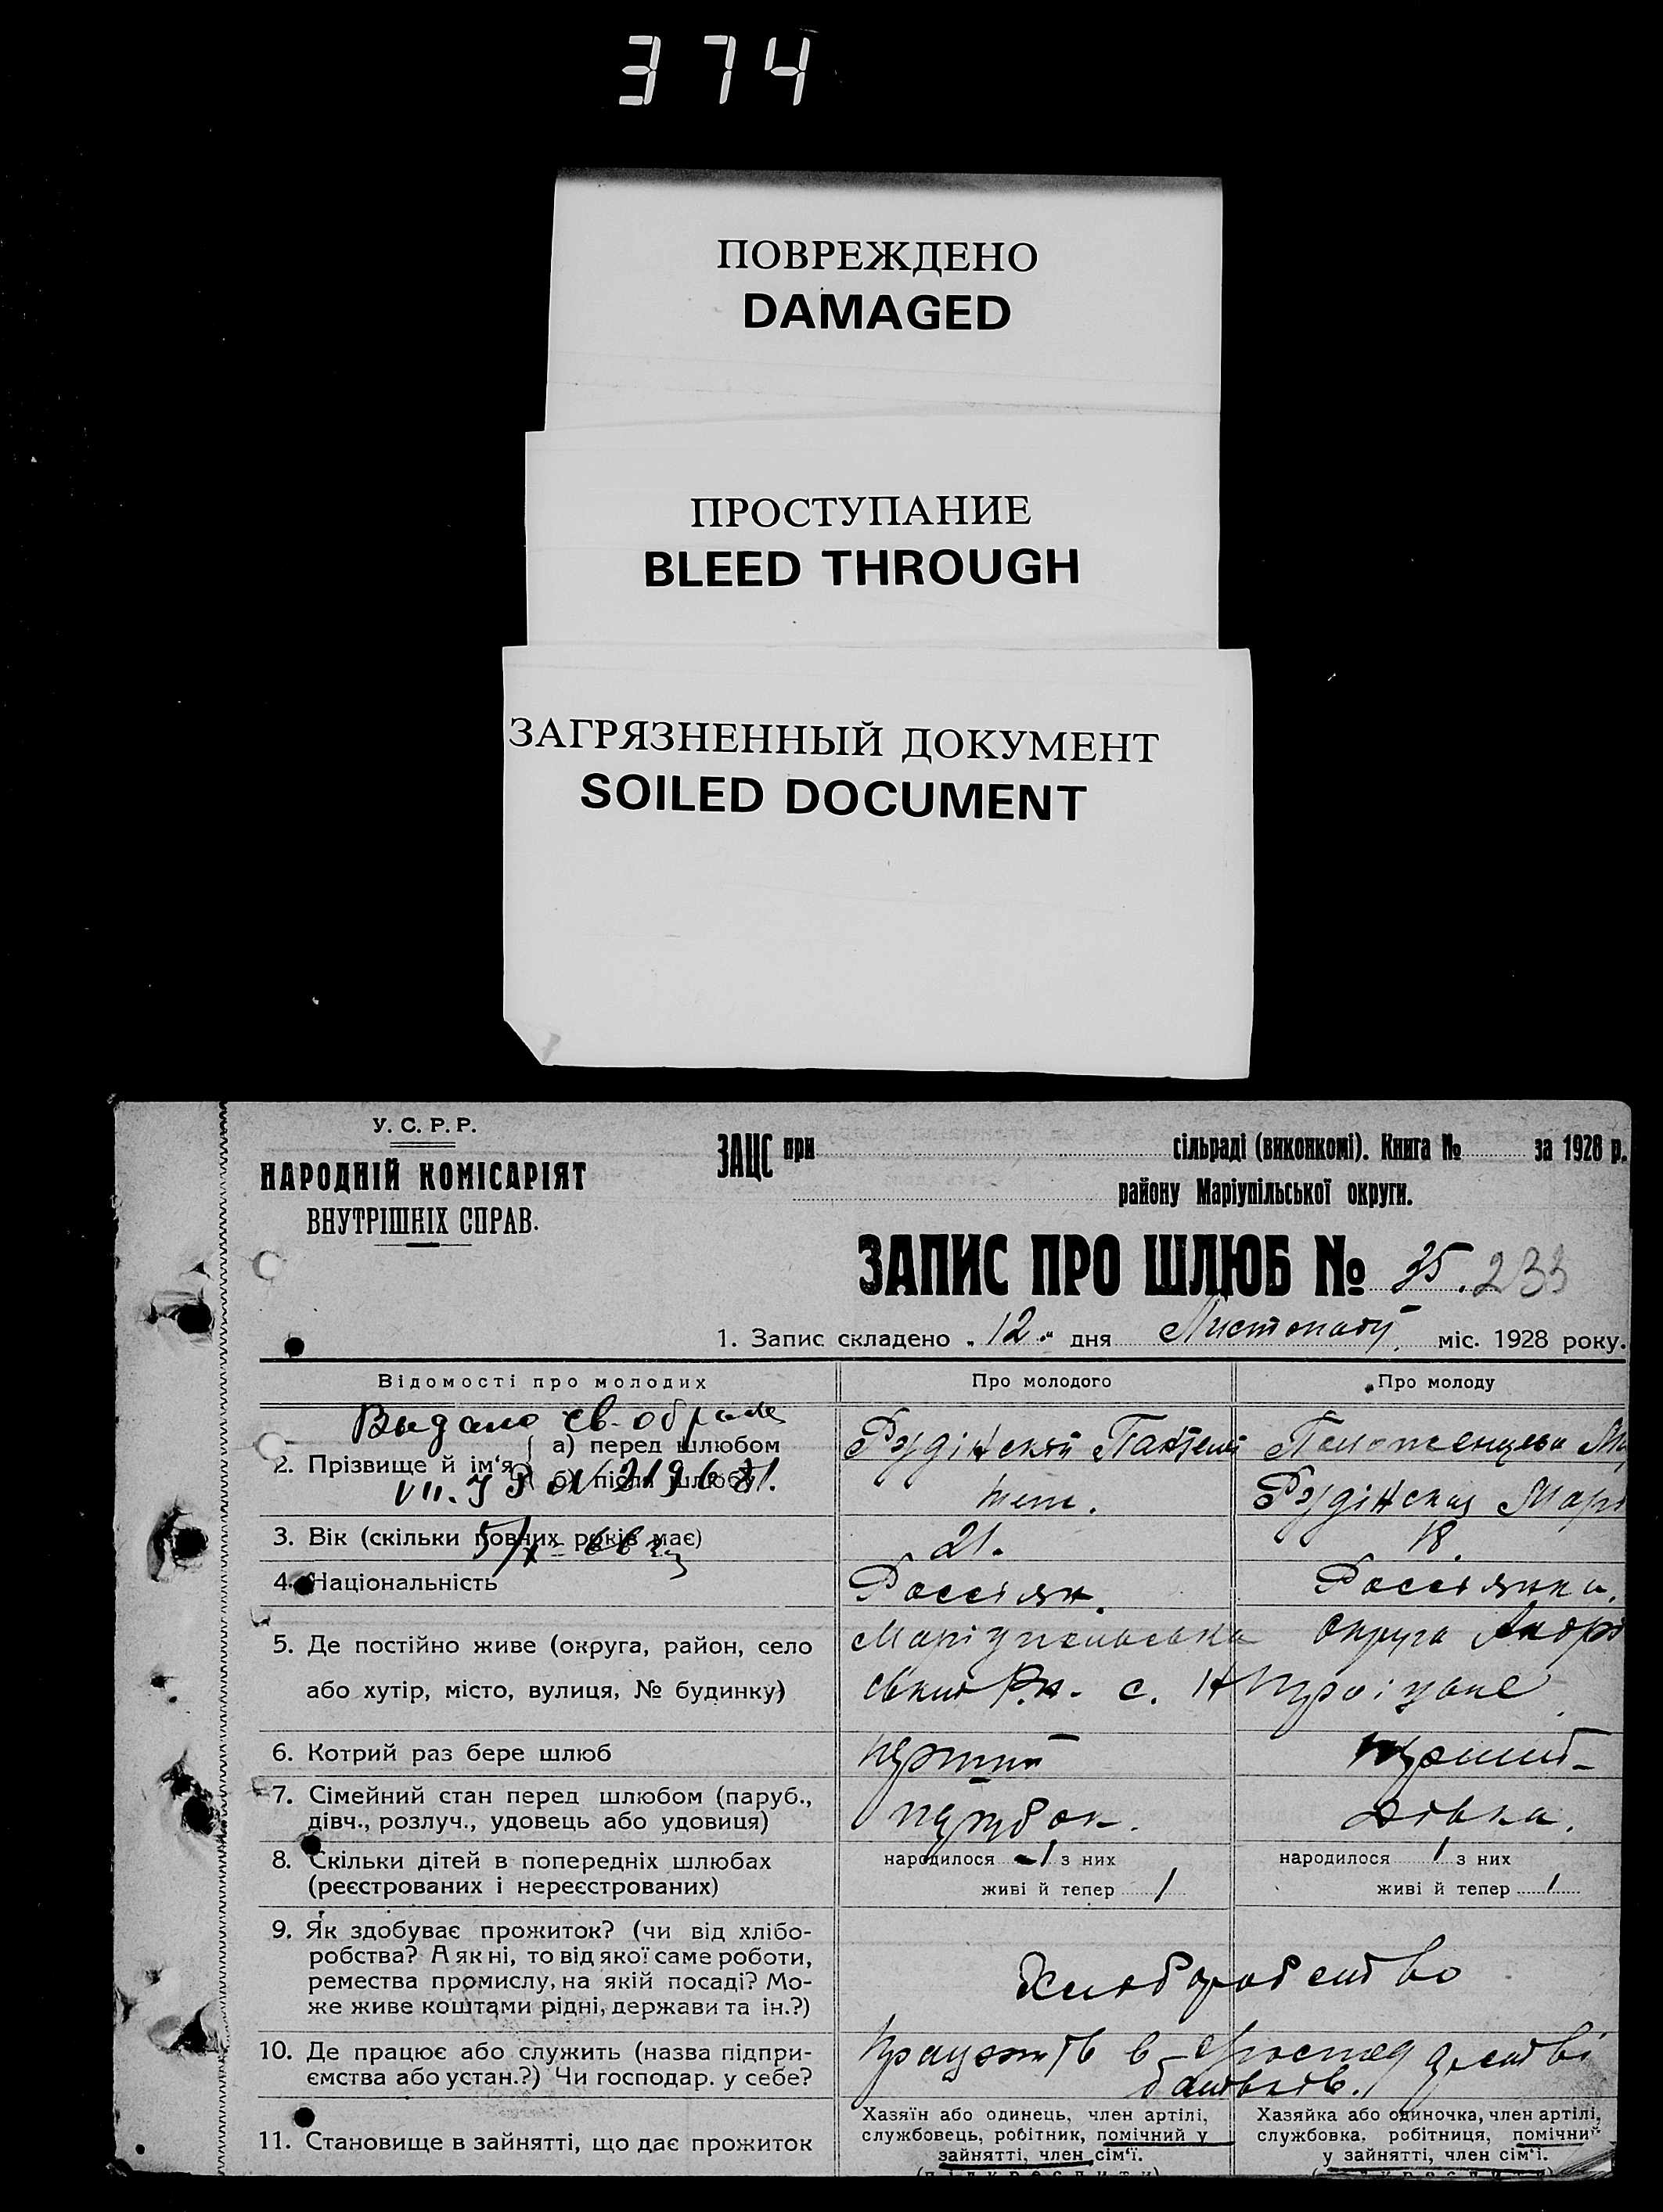 374
ПОВРЕЖДЕНО
DAMAGED
ПРОСТУПАНИЕ
BLEED THROUGH
ЗАГРЯЗНЕННЫЙ ДОКУМЕНТ
SOILED DOCUMENT
У. С. Р. Р.
НАРОДНІЙ КОМІСАРІЯТ
ВНУТРІШНІХ СПРАВ.
ЗАЦС при сільраді (виконкомі). Книга № за 1928 р.
району Маріупільської округи.
ЗАПИС ПРО ШЛЮБ № 35. 233
1. Запис складено „12“ дня Листопаду міс. 1928 року.
Відомості про молодих Про молодого Про молоду
Выдано св-
2. Прізвище й ім‘я { а) перед шлюбом
б) після шлюбу
Рудінскій
Рудінская
3. Вік (скільки повних років має) 21. 18.
4. Національність Россіян. Россіянка.
5. Де постійно живе (округа, район, село
або хутір, місто, вулиця, № будинку)
Маріупольська округа
с.
6. Котрий раз бере шлюб перший перший
7. Сімейний стан перед шлюбом (паруб.,
дівч., розлуч., удовець або удовиця)
парубок. дівка.
8. Скільки дітей в попередніх шлюбах
(реєстрованих і нереєстрованих)
народилося з них
живі й тепер
народилося з них
живі й тепер
9. Як здобуває прожиток? (чи від хлібо-
робства? А як ні, то від якої саме роботи,
ремества промислу, на якій посаді? Мо-
же живе коштами рідні, держави та ін.?)
Хліборобство
10. Де працює або служить (назва підпри-
ємства або устан.?) Чи господар. у себе?
Працюють в
батьків.
11. Становище в зайнятті, що дає прожиток
Хазяїн або одинець, член артілі,
службовець, робітник, помічний у
зайнятті, член сім‘ї.
Хазяйка або одиночка, член артілі,
службовка, робітниця, помічний
у зайнятті, член сім‘ї.